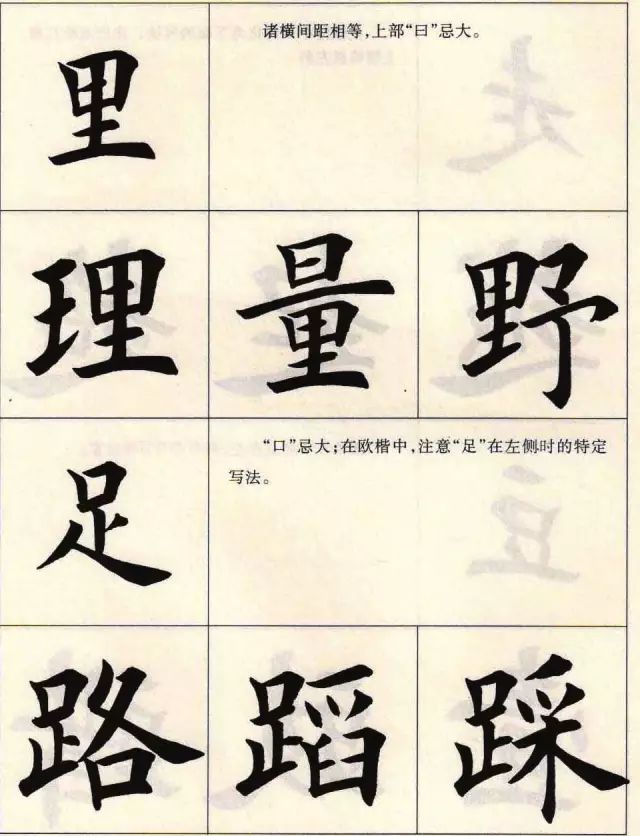 里
诸横间距相等，上部“曰”忌大。
理 量 野
足
“口”忌大；在欧楷中，注意“足”在左侧时的特定
写法。
路 蹈 踩